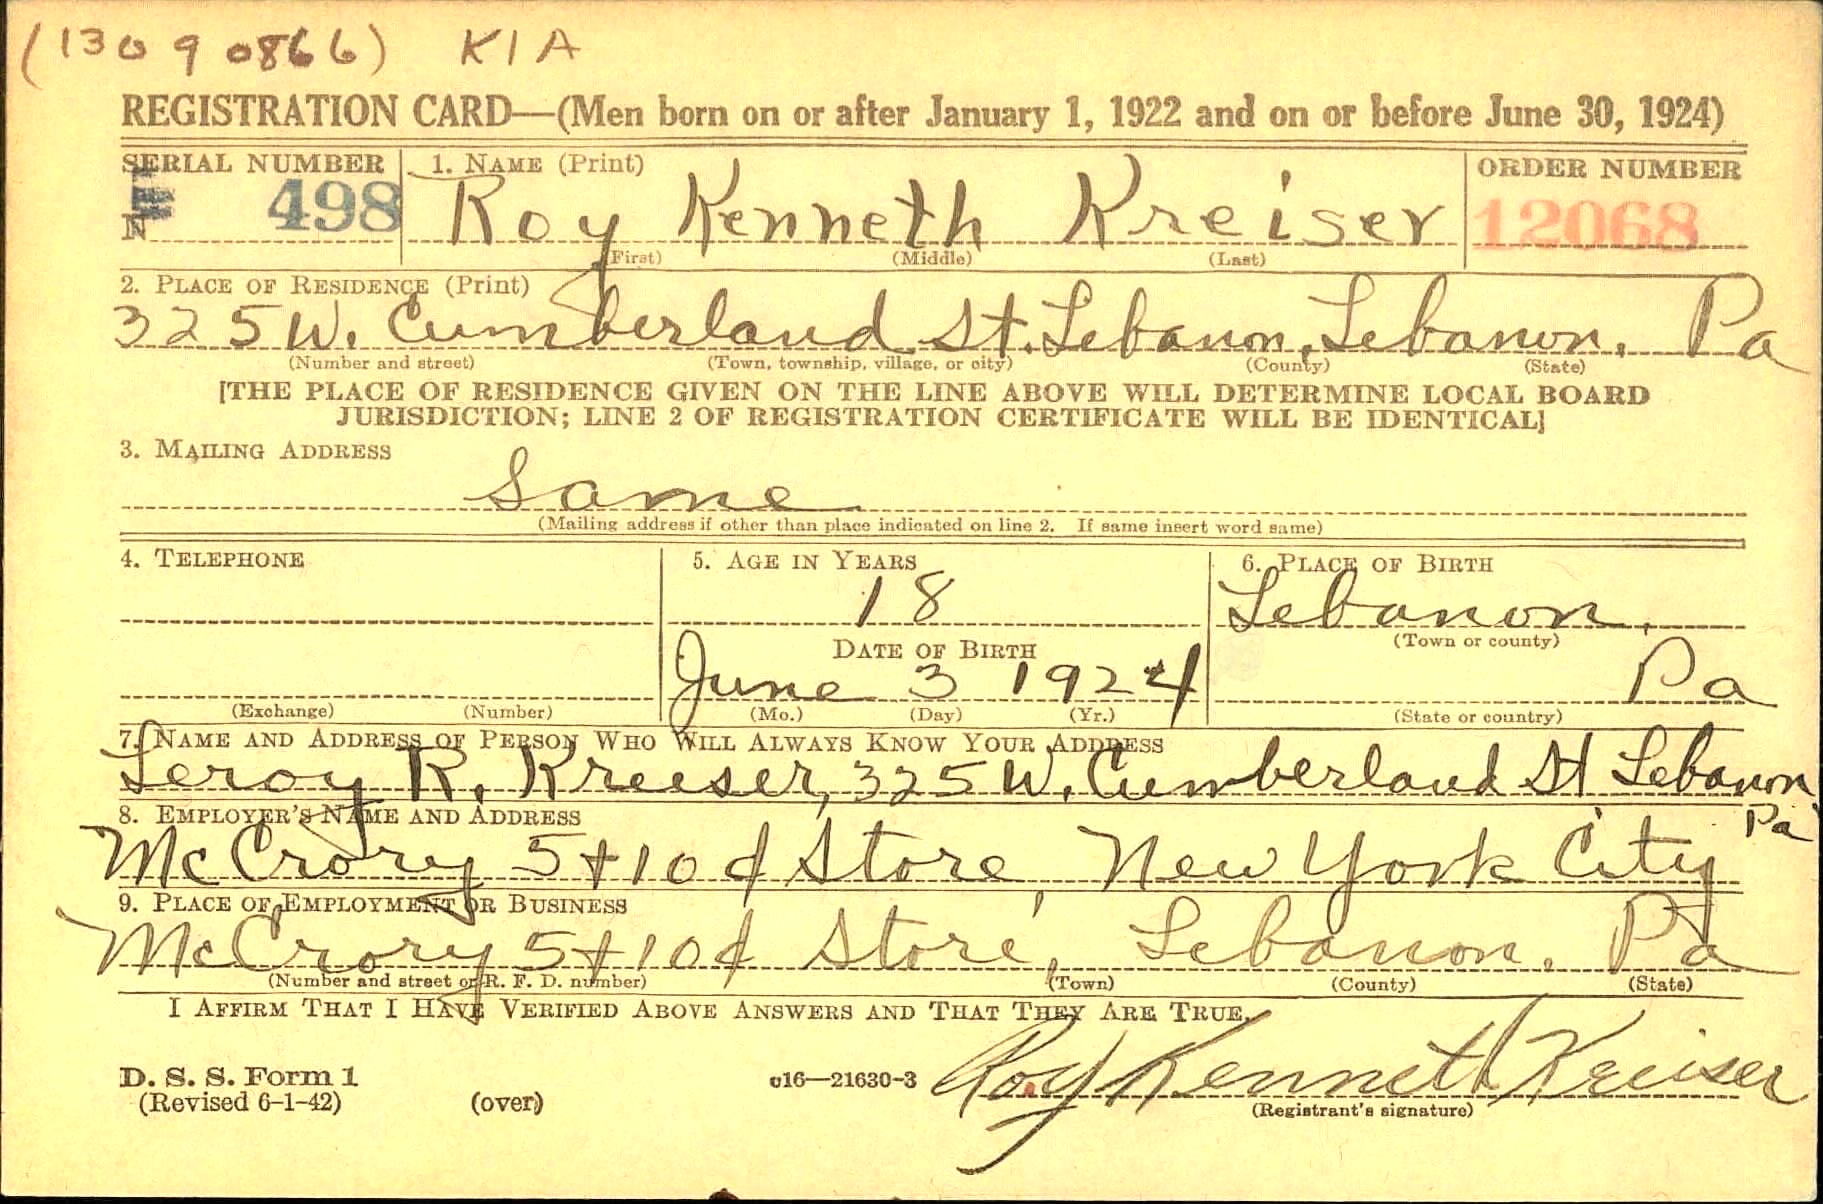 (13090866) KIA
REGISTRATION CARD—(Men born on or after January 1, 1922 and on or before June 30, 1924)
SERIAL NUMBER 1. NAME (Print) ORDER NUMBER
N 498 Roy Kenneth Kreiser 12068
(First) (Middle) (Last)
2. PLACE OF RESIDENCE (Print)
325 W. Cumberland St. Lebanon, Lebanon, Pa
(Number and street) (Town, township, village, or city) (County) (State)
[THE PLACE OF RESIDENCE GIVEN ON THE LINE ABOVE WILL DETERMINE LOCAL BOARD
JURISDICTION; LINE 2 OF REGISTRATION CERTIFICATE WILL BE IDENTICAL]
3. MAILING ADDRESS
Same
(Mailing address if other than place indicated on line 2. If same insert word same)
4. TELEPHONE 5. AGE IN YEARS 6. PLACE OF BIRTH
18 Lebanon,
DATE OF BIRTH (Town or county)
June 3 1924 Pa
(Exchange) (Number) (Mo.) (Day) (Yr.) (State or country)
7. NAME AND ADDRESS OF PERSON WHO WILL ALWAYS KNOW YOUR ADDRESS
Leroy R. Kreiser, 325 W. Cumberland St Lebanon
Pa
8. EMPLOYER'S NAME AND ADDRESS
McCrory 5+10¢ Store, New York City
9. PLACE OF EMPLOYMENT OR BUSINESS
McCrory 5+10¢ Store, Lebanon. Pa
(Number and street or R. F. D. number) (Town) (County) (State)
I AFFIRM THAT I HAVE VERIFIED ABOVE ANSWERS AND THAT THEY ARE TRUE.
D. S. S. Form 1
(Revised 6-1-42) (over) c16—21630-3 Roy Kenneth Kreiser
(Registrant's signature)